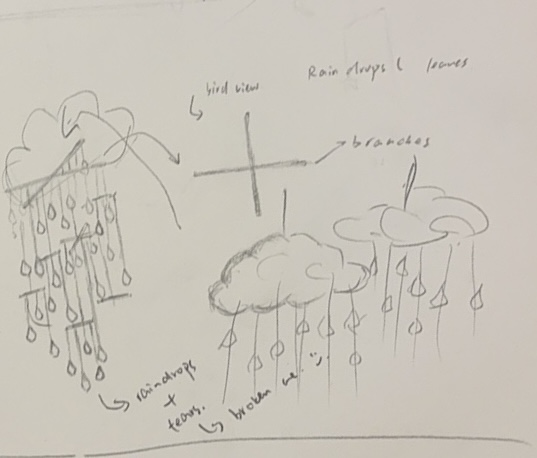 bird view
Rain drops & leaves
branches
raindrops
+
tears.
broken me :).